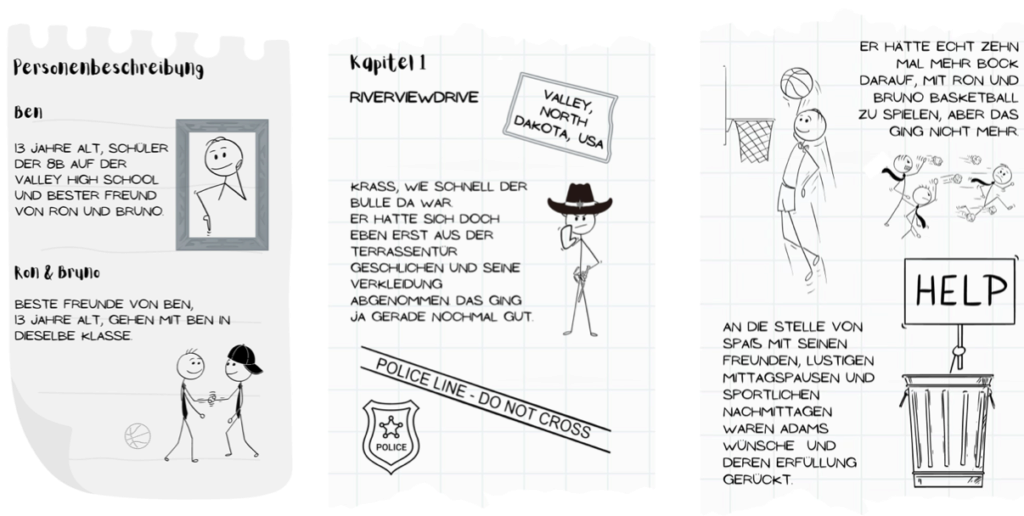 Personenbeschreibung
Ben
13 JAHRE ALT, SCHÜLER
DER 8B AUF DER
VALLEY HIGH SCHOOL
UND BESTER FREUND
VON RON UND BRUNO.
Ron & Bruno
BESTE FREUNDE VON BEN,
13 JAHRE ALT, GEHEN MIT BEN IN
DIESELBE KLASSE.
Kapitel 1
RIVERVIEWDRIVE
VALLEY,
NORTH
DAKOTA, USA
KRASS, WIE SCHNELL DER
BULLE DA WAR.
ER HATTE SICH DOCH
EBEN ERST AUS DER
TERRASSENTÜR
GESCHLICHEN UND SEINE
VERKLEIDUNG
ABGENOMMEN. DAS GING
JA GERADE NOCHMAL GUT.
POLICE LINE - DO NOT CROSS
POLICE
ER HÄTTE ECHT ZEHN
MAL MEHR BOCK
DARAUF, MIT RON UND
BRUNO BASKETBALL
ZU SPIELEN, ABER DAS
GING NICHT MEHR.
HELP
AN DIE STELLE VON
SPAß MIT SEINEN
FREUNDEN, LUSTIGEN
MITTAGSPAUSEN UND
SPORTLICHEN
NACHMITTAGEN
WAREN ADAMS
WÜNSCHE UND
DEREN ERFÜLLUNG
GERÜCKT.